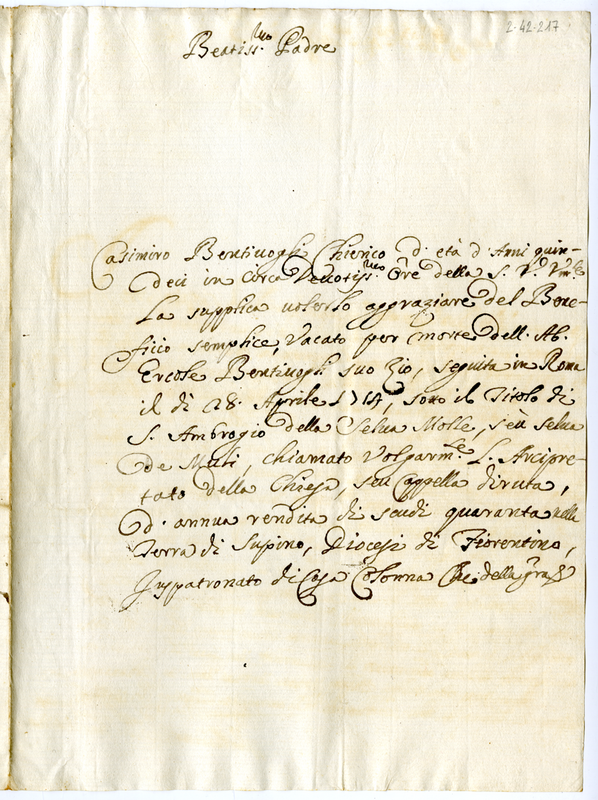 2-42-217
Beatiss.mo Padre
Casimiro Bentiuogli Chierico d' età d' Anni quin-
deci in circa Deuotiss.mo Ore della S. V. Um.te
La supplica uolerlo aggraziare del Bene-
ficio semplice, Vacato per morte dell' Ab.
Ercole Bentiuogli suo Zio, seguita in Roma
il dì 28. Aprile 1714, sotto il Titolo di
S. Ambrogio della Selua Molle, seu selua
de Muli, chiamato Volgarm.te L' Arcipre-
tato della Chiesa, seu Cappella diruta,
d' annua rendita di scudi quaranta nella
Terra di Supino, Diocesi di Fiorentino,
Juspatronato di Casa Colonna Che della gra